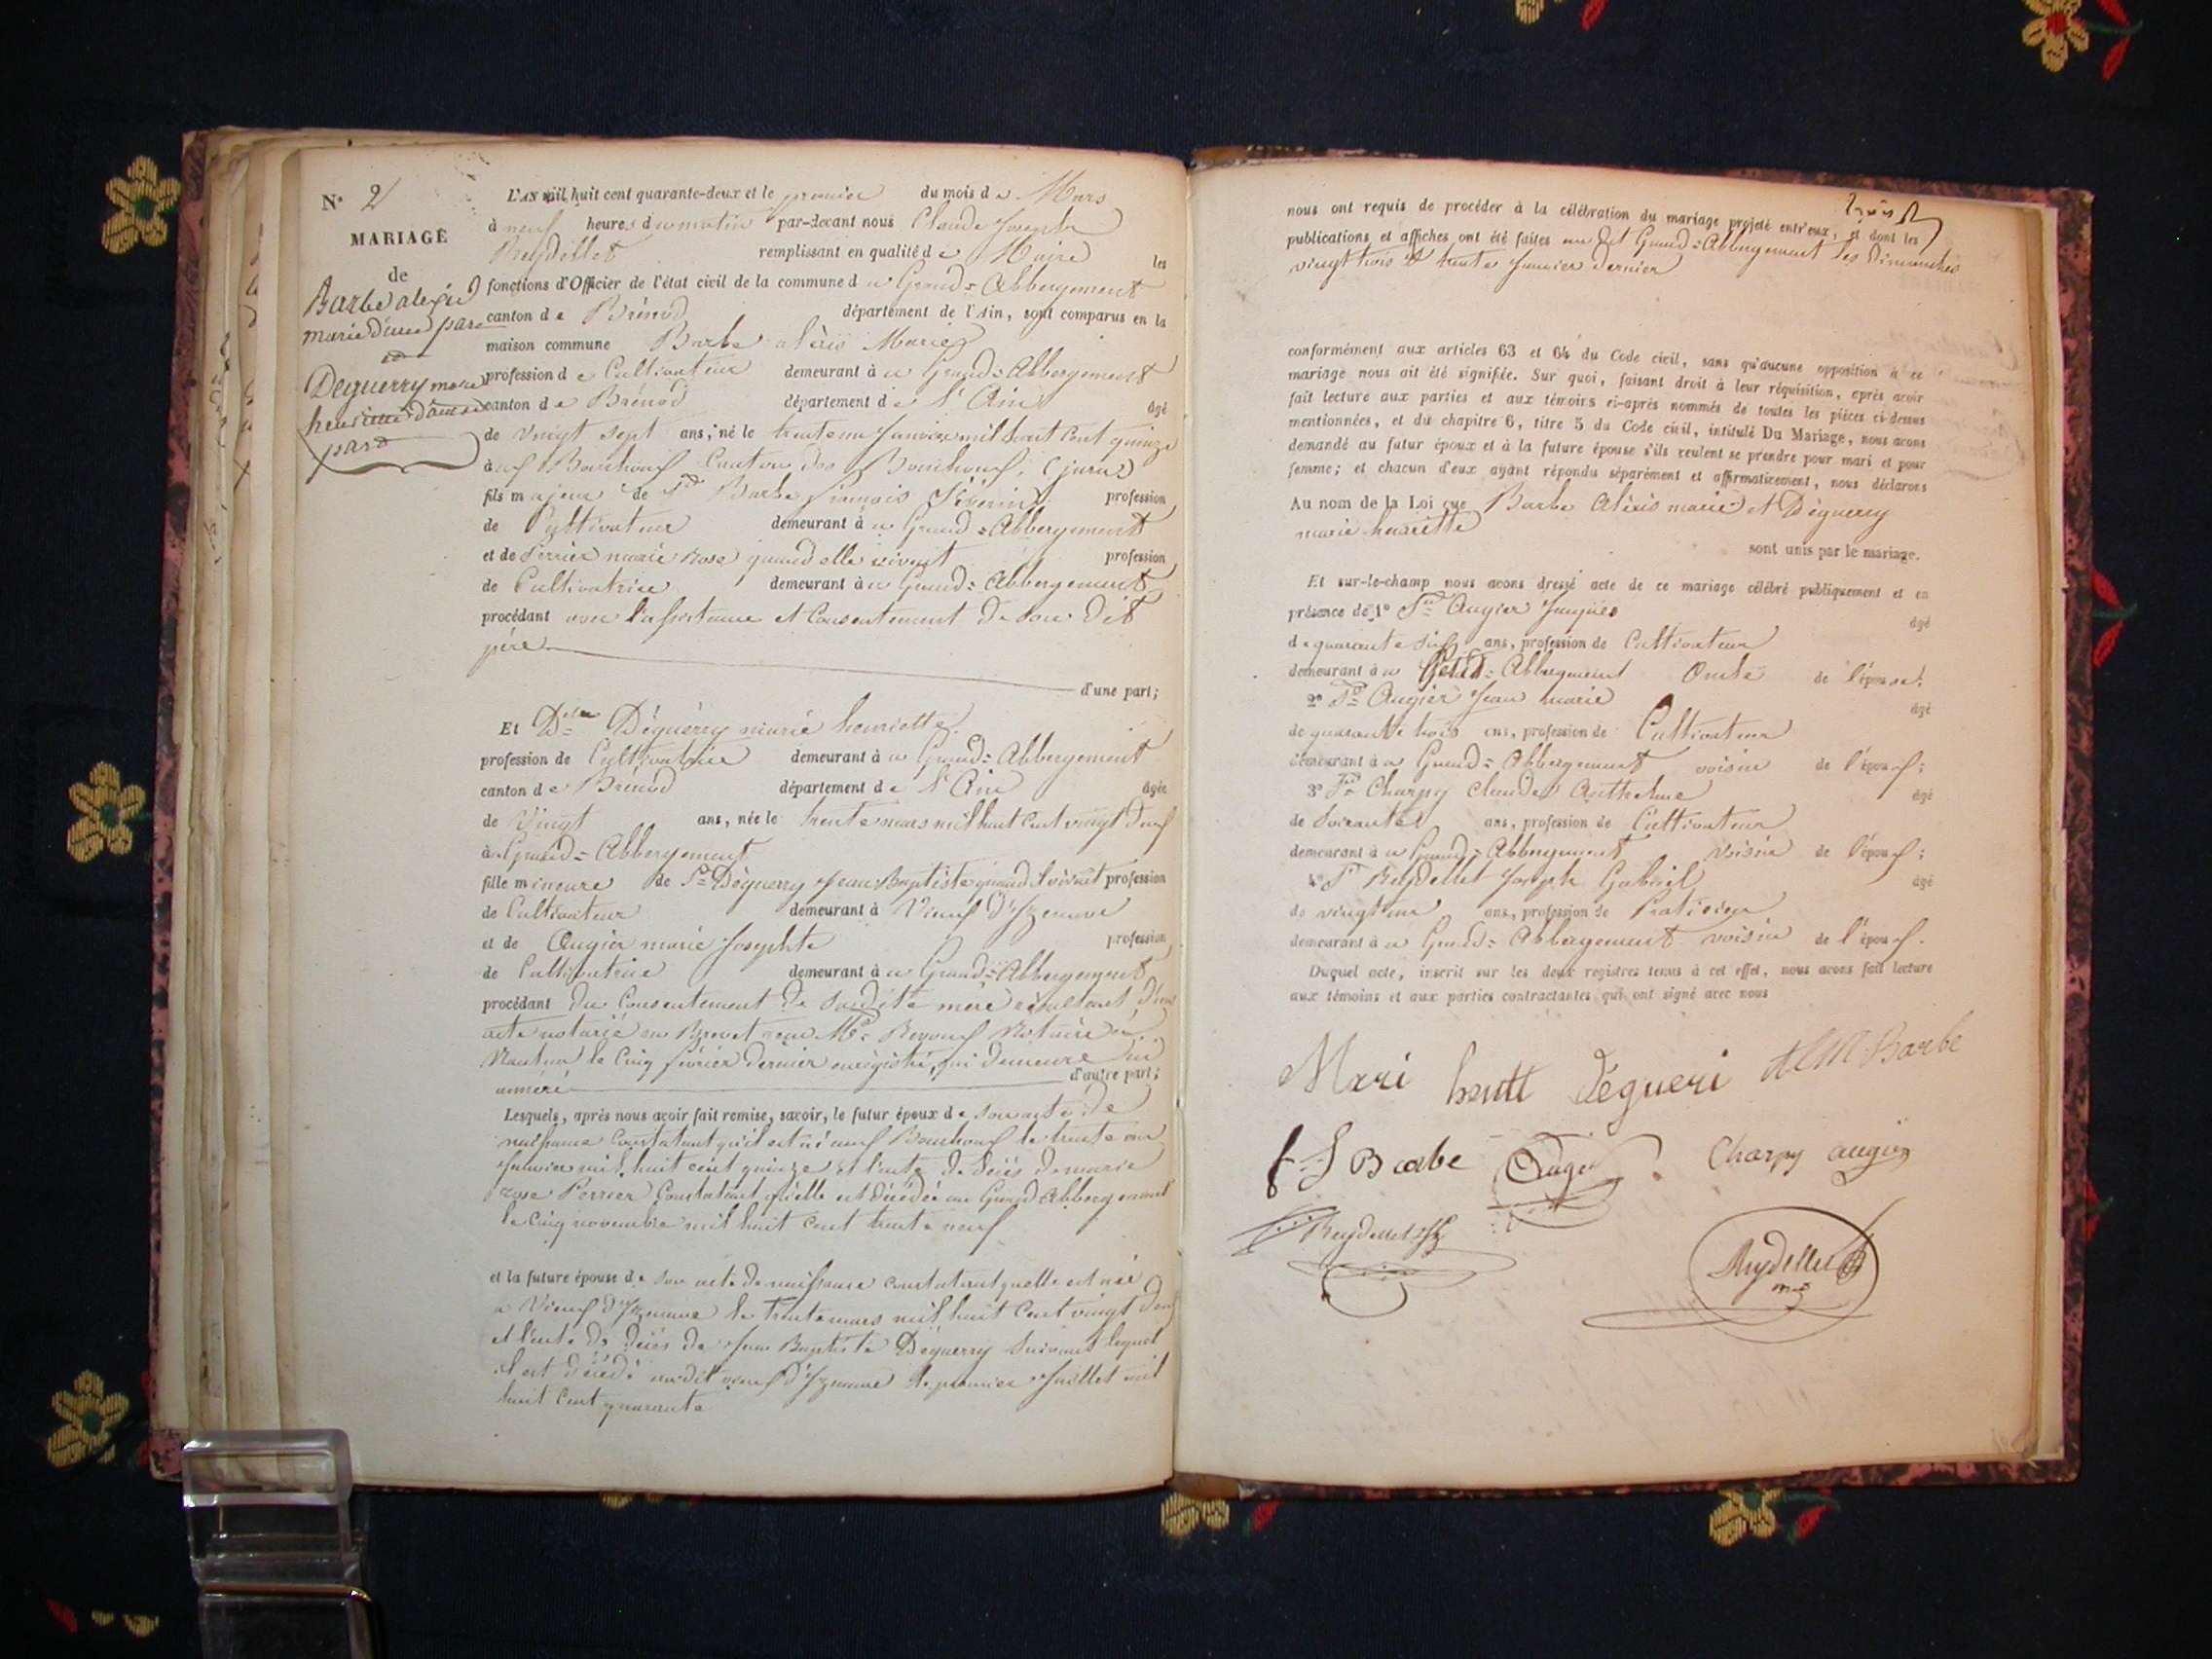 N° 2
MARIAGE
de
Barbe alexis
marie d'une part
et
Deguerry marie
henriette d'autre
part
L'AN mil huit cent quarante-deux et le premier du mois de Mars
à neuf heures du matin par-devant nous Claude Joseph
Reydellet remplissant en qualité de Maire les
fonctions d'Officier de l'état civil de la commune du Grand-Abbergement
canton de Brénod département de l'Ain, sont comparus en la
maison commune Barbe alèxis Marie
profession de Cultivateur demeurant à au Grand-Abbergement
canton de Brénod département de l'Ain âgé
de vingt sept ans, né le trente un Janvier mil huit cent quinze
aux Bouchoux Canton des Bouchoux (jura)
fils majeur de Sr Barbe françois Sévérin profession
de Cultivateur demeurant à au Grand-Abbergement
et de Perrier marie Rose quand elle vivait profession
de Cultivatrice demeurant à au Grand-Abbergement
procédant avec l'assistance et Consentement de son dit
père d'une part;
Et Dlle Déguerry marie henriette
profession de Cultivatrice demeurant à au Grand-Abbergement
canton de Brénod département de l'Ain âgée
de Vingt ans, née le trente mars mil huit cent vingt deux
à Grand-Abbergement
fille mineure de Sr Déguerry Jean Baptiste quand il vivait profession
de Cultivateur demeurant à Vieux d'Izenave
et de Augier marie Josephte profession
de Cultivatrice demeurant à au Grand-Abbergement
procédant du Consentement de sa dite mère résultant d'un
acte notarié en Brevet reçu Me Notaire à
Nantua le Cinq février dernier enregistré, qui demeure ici
annéxé d'autre part;
Lesquels, après nous avoir fait remise, savoir, le futur époux de son acte de
naissance Constatant qu'il est né aux Bouchoux le trente un
Janvier mil huit cent quinze et l'acte de décès de marie
rose Perrier Constatant qu'elle est décédée au Grand Abbergement
le Cinq novembre mil huit cent trente neuf
et la future épouse de son acte de naissance constatant quelle est née
à Vieux d'Izenave le trente mars mil huit Cent vingt deux
et l'acte de décès de Jean Baptiste Déguerry suivant lequel
il est décédé au dit vieux d'Izenave le premier Juillet mil
huit Cent quarante
trois
nous ont requis de procéder à la célébration du mariage projeté entr'eux, et dont les
publications et affiches ont été faites au dit Grand-Abbergement les dimanches
vingt trois et trente Janvier dernier
conformément aux articles 63 et 64 du Code civil, sans qu'aucune opposition à ce
mariage nous ait été signifiée. Sur quoi, faisant droit à leur réquisition, après avoir
fait lecture aux parties et aux témoins ci-après nommés de toutes les pièces ci-dessus
mentionnées, et du chapitre 6, titre 5 du Code civil, intitulé Du Mariage, nous avons
demandé au futur époux et à la future épouse s'ils veulent se prendre pour mari et pour
femme; et chacun d'eux ayant répondu séparément et affirmativement, nous déclarons
Au nom de la Loi que Barbe Alèxis marie et Dèguerry
marie henriette
sont unis par le mariage.
Et sur-le-champ nous avons dressé acte de ce mariage célébré publiquement et en
présence de 1° Sr Augier Jacques âgé
de quarante six ans, profession de Cultivateur
demeurant à au Petit-Abbergement Oncle de l'épouse;
2° Sr Augier Jean marie âgé
de quarante trois ans, profession de Cultivateur
demeurant à au Grand-Abbergement voisin de l'époux;
3° Sr Charpy Claude Anthelme âgé
de soixante ans, profession de Cultivateur
demeurant à au Grand-Abbergement voisin de l'époux;
4° Sr Reydellet Joseph Gabriel âgé
de vingt un ans, profession de Praticien
demeurant à au Grand-Abbergement voisin de l'époux.
Duquel acte, inscrit sur les deux registres tenus à cet effet, nous avons fait lecture
aux témoins et aux parties contractantes qui ont signé avec nous
Mari hentt Dégueri A M Barbe
f S Barbe Augier Charpy augier
Reydellet Reydellet